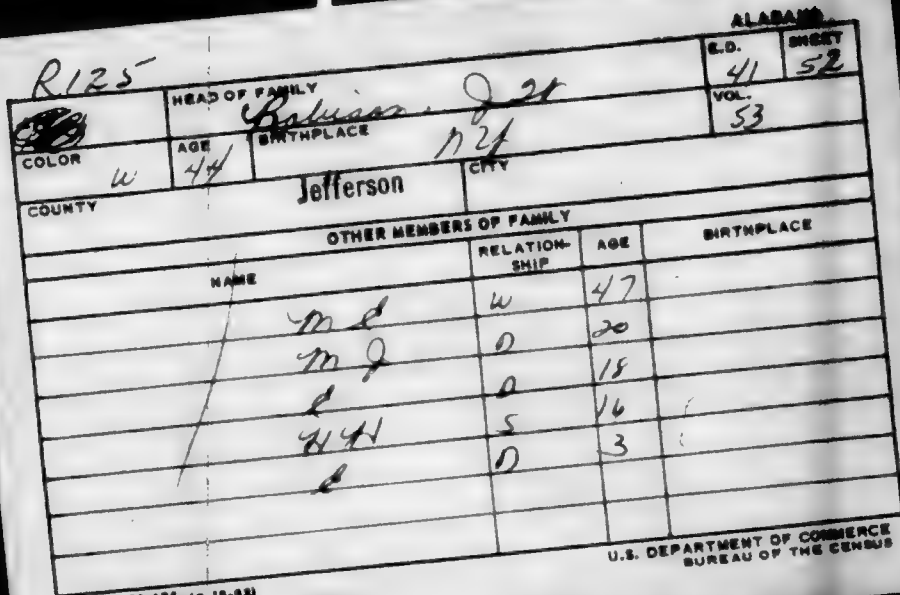 ALABAMA
R125
HEAD OF FAMILY
Robison. J
E.D.
41
SHEET
52
VOL.
53
COLOR
W
AGE
44
BIRTHPLACE
COUNTY
Jefferson
CITY
OTHER MEMBERS OF FAMILY
NAME RELATION-SHIP AGE BIRTHPLACE
W 47
M J D 20
D 18
H H S 16
D 3
U.S. DEPARTMENT OF COMMERCE
BUREAU OF THE CENSUS